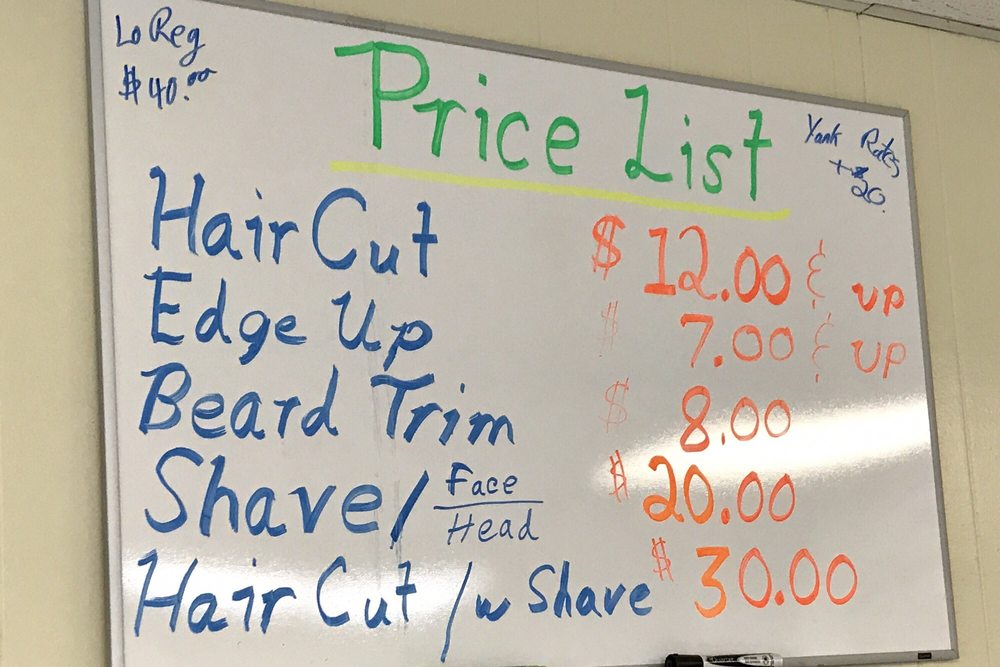 Lo Reg
$40.00
Price List
Yank Rates
+$20.
Hair Cut $12.00 & up
Edge Up $7.00 & up
Beard Trim $8.00
Shave / Face
Head $20.00
Hair Cut /w Shave $30.00